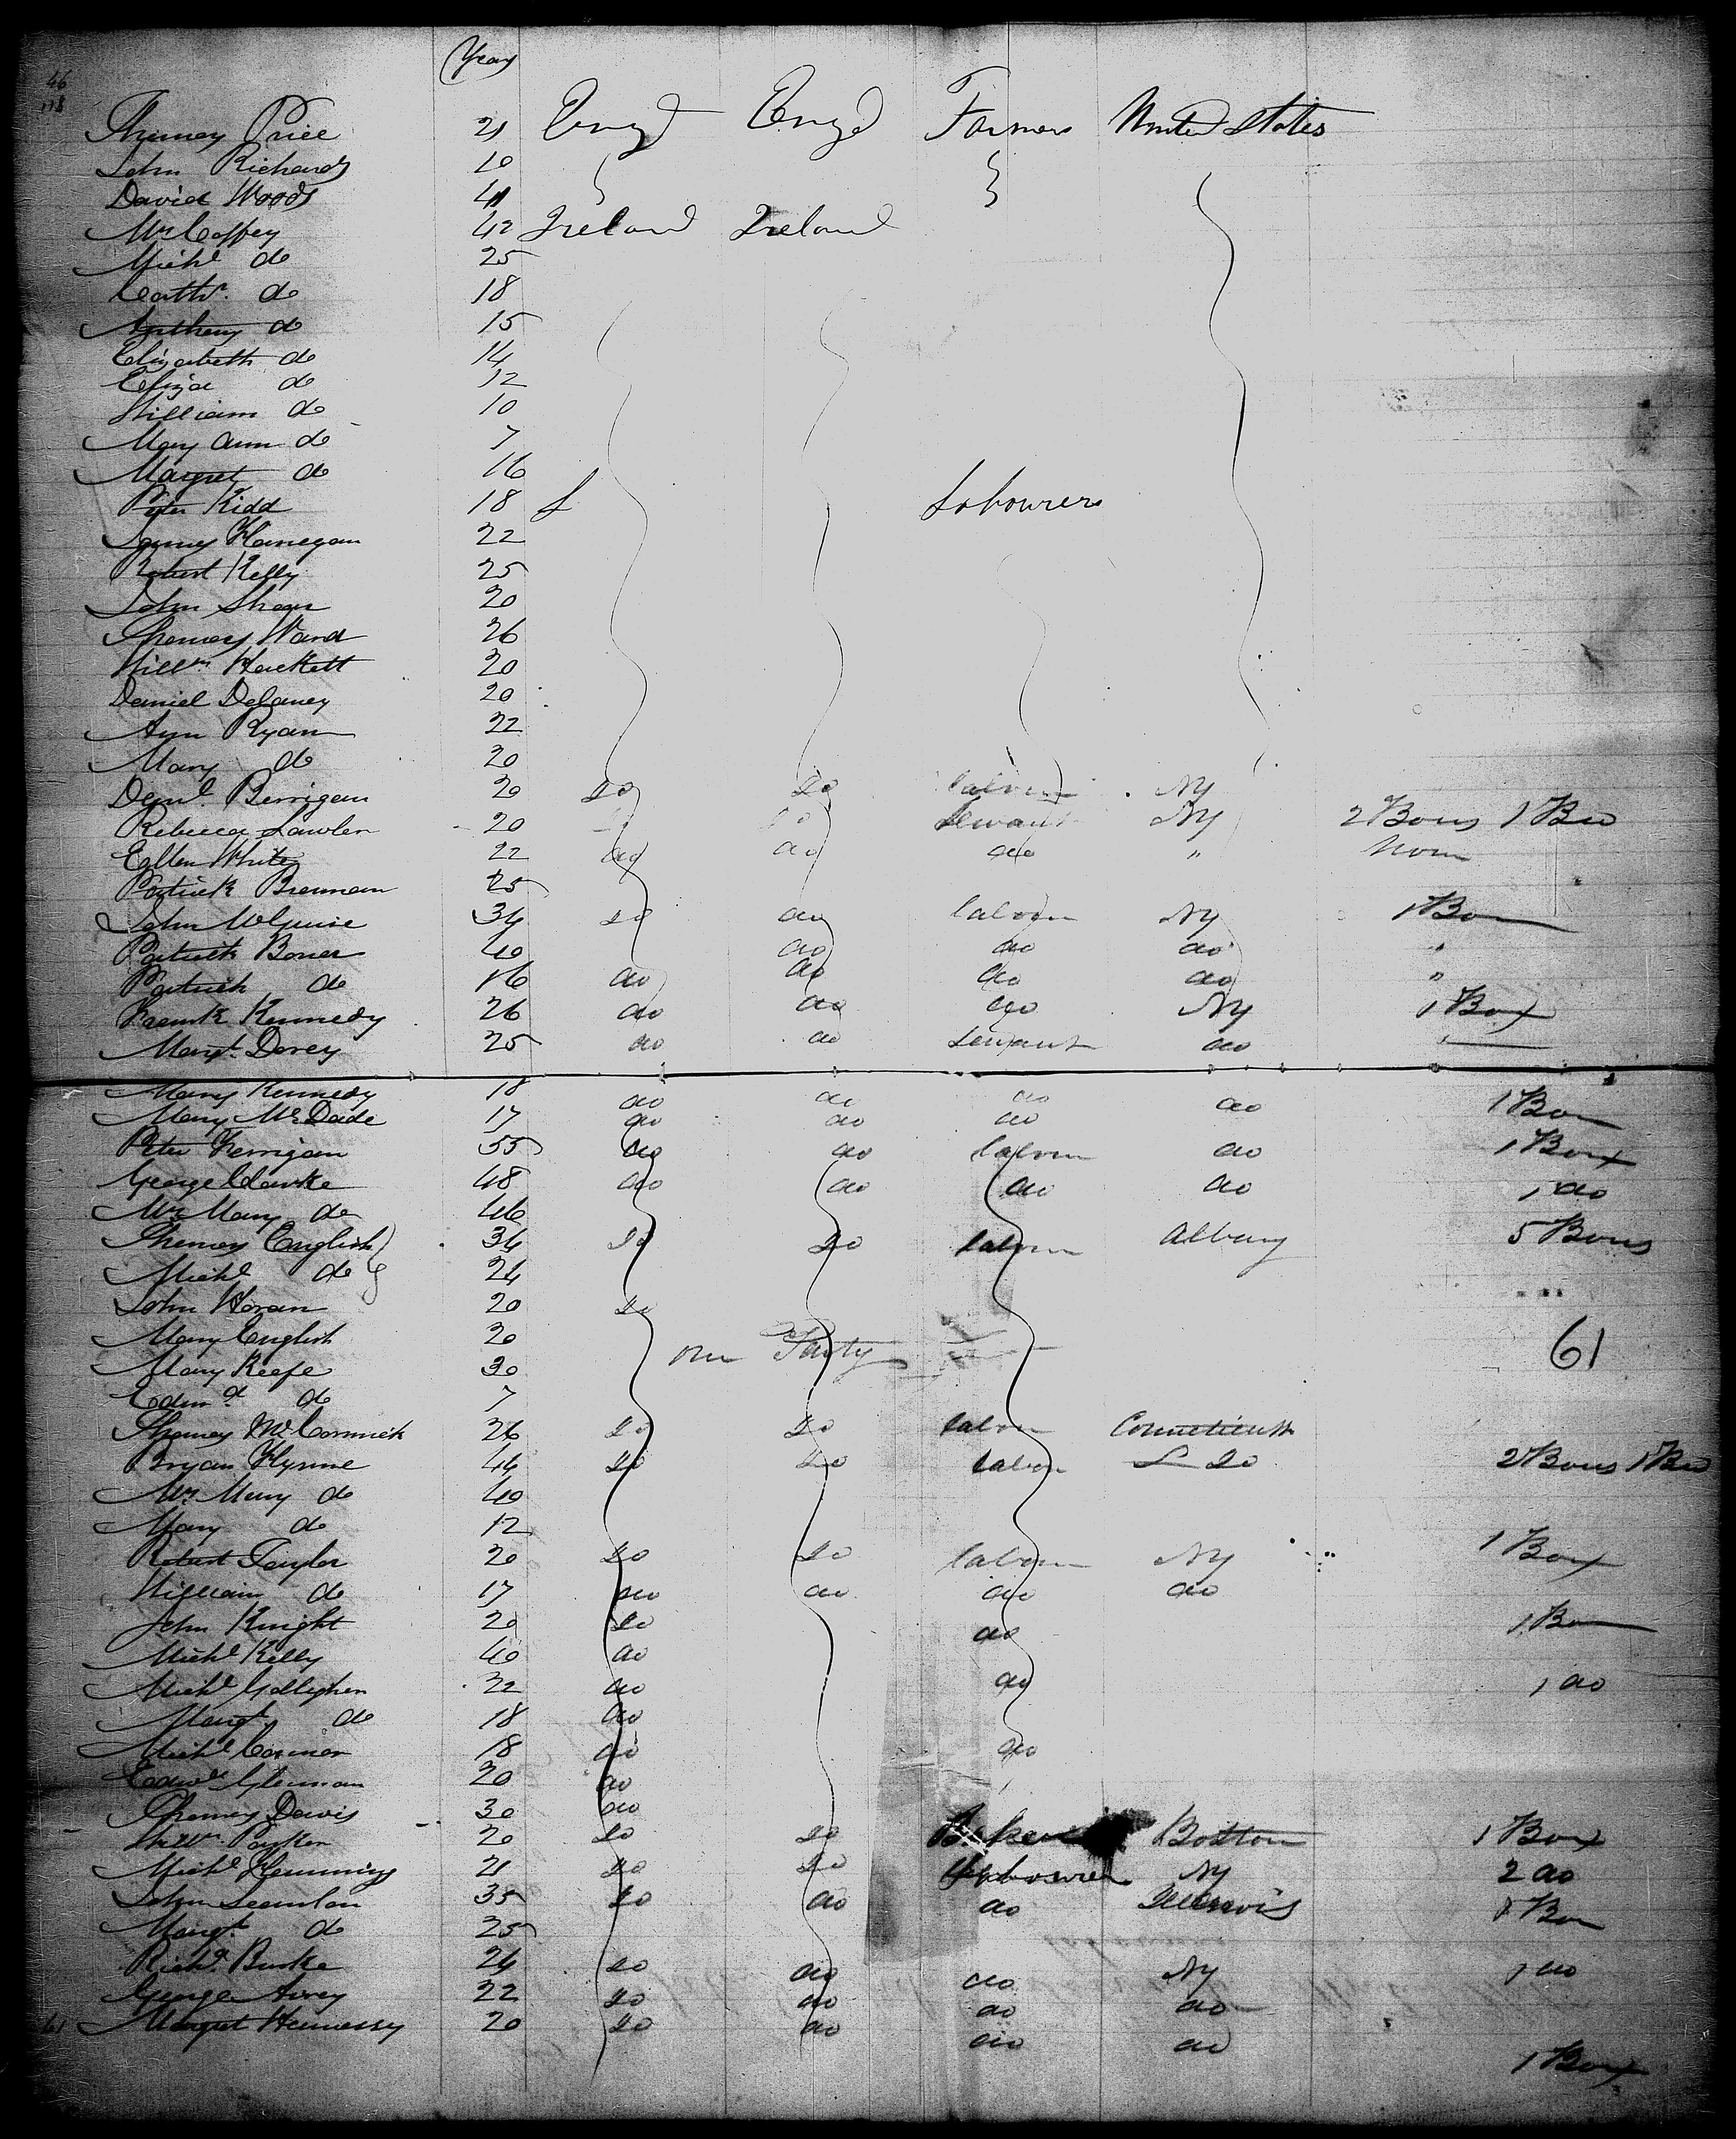 46
118
Years
Thomas Price 21 Engd Engd Farmers United States
John Richards 20
David Woods 41
Mrs Caffey 42 Ireland Ireland
Michl do 25
Cathr. do 18
Anthony do 15
Elizabeth do 14
Eliza do 12
William do 10
Mary Ann do 7
Margret do 16
Peter Kidd 18 Labourers
James Flanegan 22
Robert Kelly 25
John Shean 20
Thomas Ward 26
Willm Hackett 20
Daniel Delaney 20
Ann Ryan 22
Mary do 20
Danl. Berrigan 20 do do labour NY
Rebecca Lawler 20 Servant NY 2 Boxes 1 Bre
Ellen White 22 do do do " Non
Patrick Brennan 25
John McGuire 34 do do labour NY 1 Box
Patrick Boner 40 do do do "
Patrick do 16 do do do do "
Frank Kennedy 26 do do do NY 1 Box
Margt. Dorey 25 do do Servant do
Mary Kennedy 18 do do do do 1 Box
Mary McDade 17 do do do
Peter Kerrigan 55 do do labour do 1 Box
George Clarke 48 do do do do 1 do
Mrs Mary do 46
Thomas English 34 do do labour Albany 5 Boxes
Michl do 24
John Horan 20 do
Mary English 20 one Party 61
Mary Keefe 30
Edmd do 7
Thomas McCormick 26 do do labour Connecticutt
Bryan Flynne 44 do do labour do 2 Boxes 1 Bre
Mrs Mary do 40
Mary do 12
Robert Taylor 20 do do labour NY 1 Box
William do 17 do do do do
John Knight 20 do do 1 Box
Michl Kelly 40 do
Michl Gallighen 22 do do 1 do
Margt do 18 do
Michl Cormon 18 do do
Edwd Glennan 20 do
Thomas Davis 30 do
Willm. Parker 20 do do Baker Boston 1 Box
Michl Flemming 21 do do Labourer NY 2 do
John Scanlan 35 do do do Illinois 1 Box
Margt. do 25
Richd. Burke 24 do do do NY 1 do
George Avrey 22 do do do do
61 Margret Hennessy 20 do do do do
1 Box